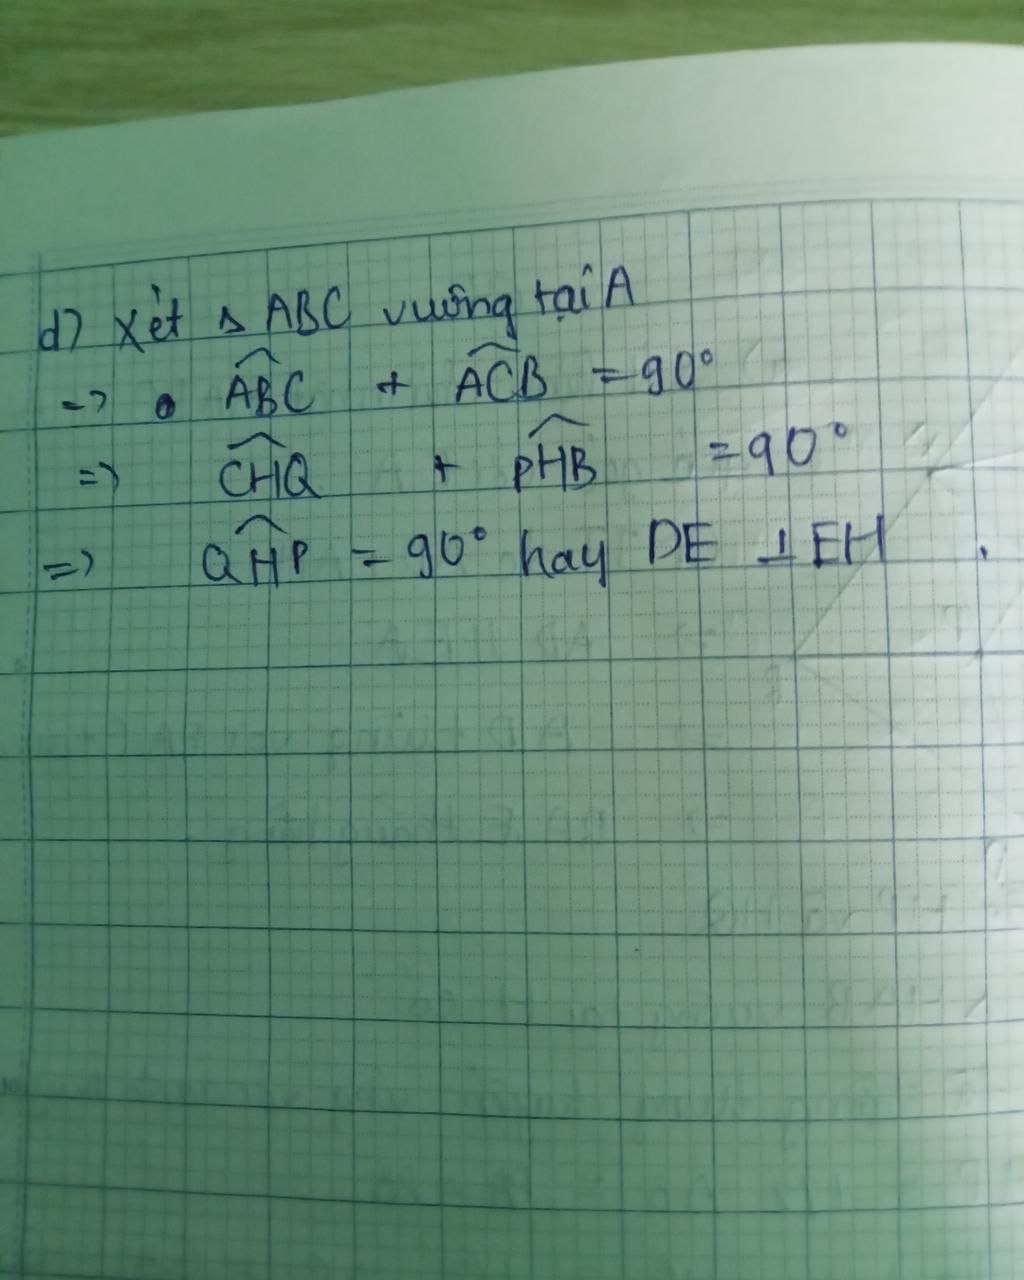 d) Xét △ ABC vuông tại A
=> \widehat{ABC} + \widehat{ACB} = 90°
=> \widehat{CHQ} + \widehat{PHB} = 90°
=> \widehat{QHP} = 90° hay DE ⊥ EH .